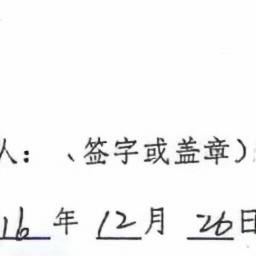 人： 、签字或盖章）
16 年 12 月 26 日